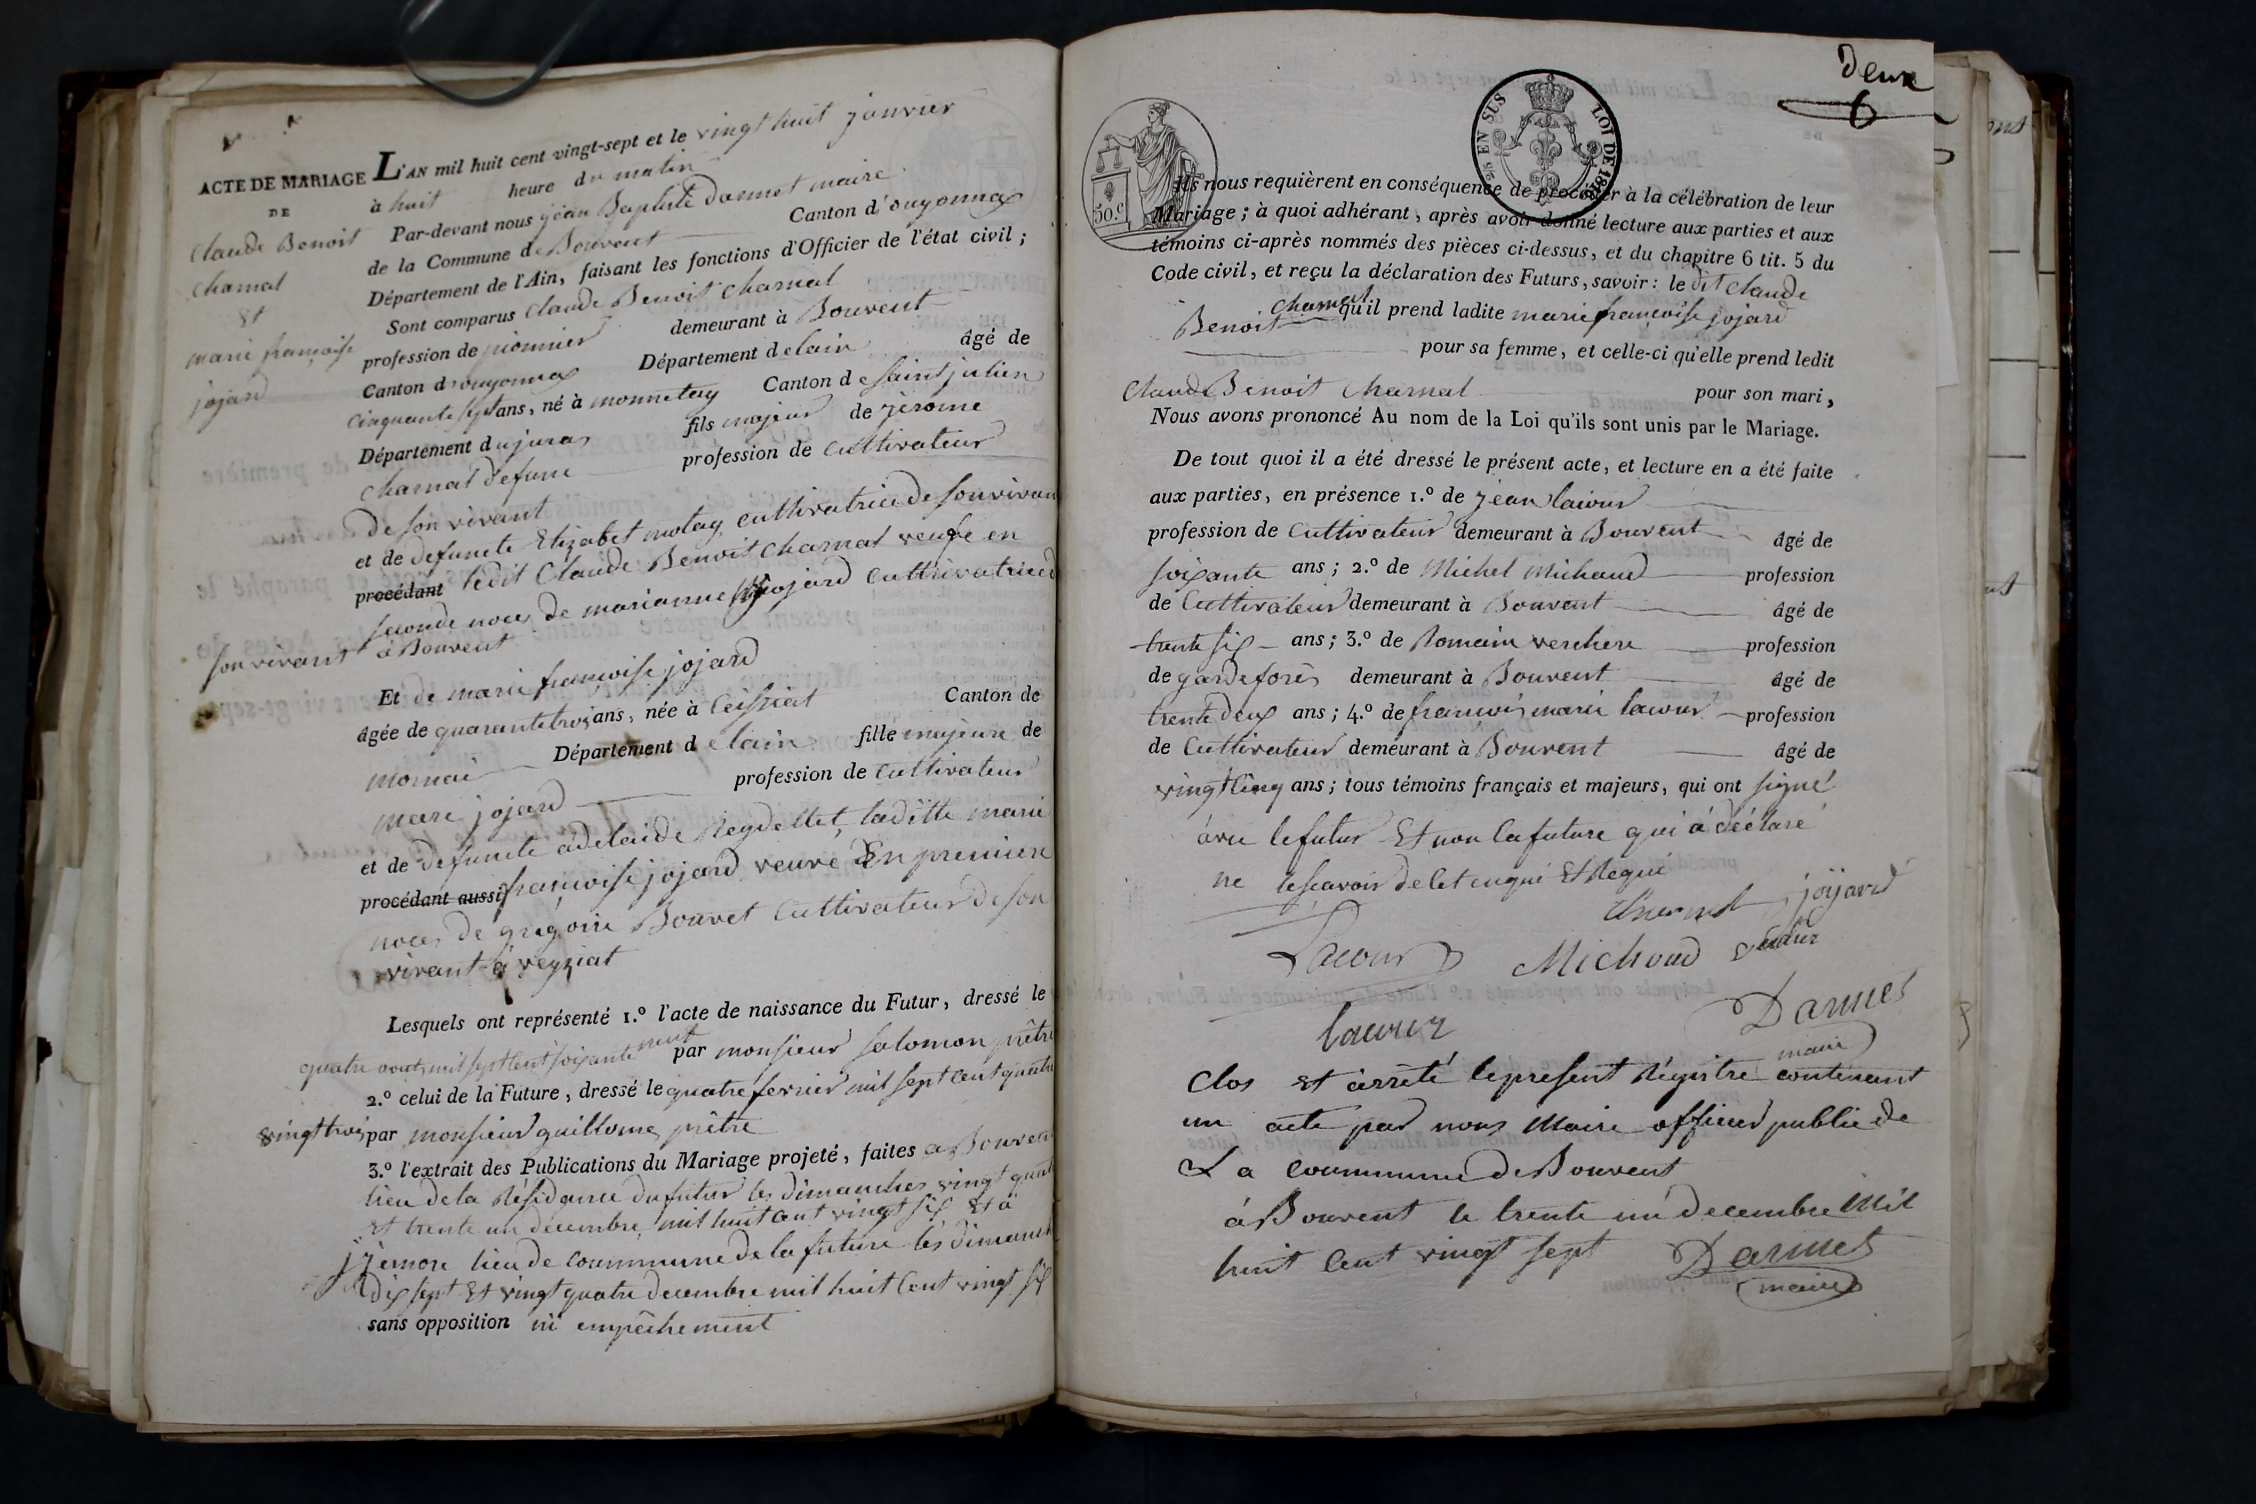 ACTE DE MARIAGE
DE
Claude Benoit
Charnal
Et
marie françoise
jojard
L'AN mil huit cent vingt-sept et le vingt huit janvier
à huit heure du matin
Par-devant nous jean Baptiste darmet maire
de la Commune de Bouvent Canton d'ouyonnax
Département de l'Ain, faisant les fonctions d'Officier de l'état civil;
Sont comparus Claude Benoit Charnal
profession de pionnier demeurant à Bouvent
Canton d'ouyonnax Département delain âgé de
Cinquante sept ans, né à monnetay Canton de saint julien
Département dujura fils majeur de jerome
Charnal defunt profession de Cultivateur
de son vivant
et de defuncte Elizabet molay cultivatrice de son vivant
procédant ledit Claude Benoit Charnal veufe en
seconde noces de marianne jojard Cultivatrice de
son vivant à Bouvent
Et de marie françoise jojard
âgée de quarante trois ans, née à Ceissiat Canton de
Département d elain fille majeure de
marc jojard profession de Cultivateur
et de defuncte adelaide Reydellet, laditte marie
procédant aussi françoise jojard veuve En premiere
noces de grégoire Bouvet Cultivateur de son
vivant à veyziat
Lesquels ont représenté 1.º l'acte de naissance du Futur, dressé le
quatre aout mil sept cent soixante neuf par monsieur salomon prêtre
2.º celui de la Future, dressé le quatre fevrier mil sept cent quatre
vingt trois par monsieur guillome prêtre
3.º l'extrait des Publications du Mariage projeté, faites a Bouvent
lieu de la Résidance du futur les dimanches vingt quatre
Et trente un decembre mil huit cent vingt six Et à
lieu de commune de la future les dimanches
dix sept Et vingt quatre decembre mil huit Cent vingt six
sans opposition ni empêchement
deux
6
50.C
EN SUS LOI DE 1816
Ils nous requièrent en conséquence de procéder à la célébration de leur
Mariage; à quoi adhérant, après avoir donné lecture aux parties et aux
témoins ci-après nommés des pièces ci-dessus, et du chapitre 6 tit. 5 du
Code civil, et reçu la déclaration des Futurs, savoir: le dit Claude
Benoit Charnal qu'il prend ladite marie françoise jojard
pour sa femme, et celle-ci qu'elle prend ledit
Claude Benoit Charnal pour son mari,
Nous avons prononcé Au nom de la Loi qu'ils sont unis par le Mariage.
De tout quoi il a été dressé le présent acte, et lecture en a été faite
aux parties, en présence 1.º de jean lacour
profession de Cultivateur demeurant à Bouvent âgé de
soixante ans; 2.º de Michel Michaud profession
de Cultivateur demeurant à Bouvent âgé de
trente six ans; 3.º de Romain verchere profession
de garde forês demeurant à Bouvent âgé de
trente deux ans; 4.º de françois marie lacour profession
de Cultivateur demeurant à Bouvent âgé de
vingt Cinq ans; tous témoins français et majeurs, qui ont signé
avec le futur Et non la future qui a déclaré
ne le scavoir de Cet enquie Et Requie
jojard
Lacour Michoud
lacour Darmet
maire
Clos Et àrrêté le present Régistre contenant
un acte par nous Maire officier public de
La Commune de Bouvent
à Bouvent le trente un decembre Mil
huit Cent vingt sept Darmet
maire